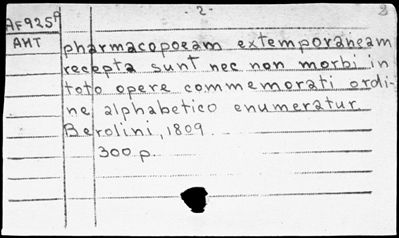 AF925A
- 2 -
2
AHT
pharmacopoeam extemporaneam
recepta sunt nec non morbi in
toto opere commemorati ordi-
ne alphabetico enumeratur
Berolini, 1809.
300 p.